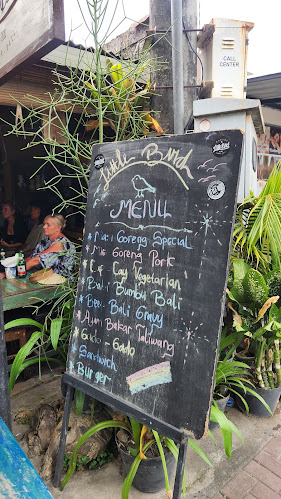 CALL
CENTER
Little Bird
MENU
Nasi Goreng Special
Mie Goreng Pork
Cap Cay Vegetarian
Babi Bumbu Bali
Beef Bali Gravy
Ayam Bakar Taliwang
Gado - Gado
Sandwich
Burger